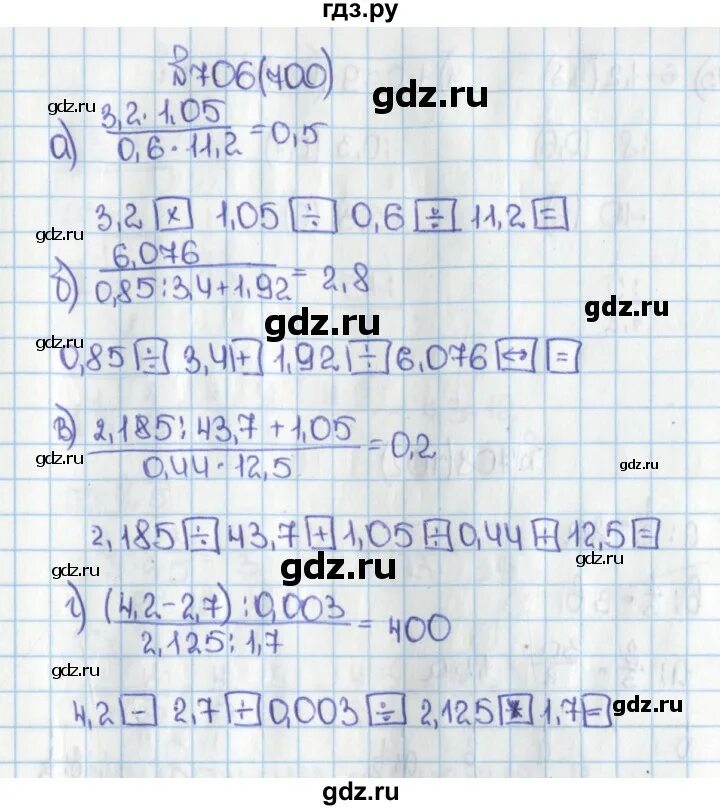 гдз.ру
№706(700)
gdz.ru
gdz.ru
а) 3,2 · 1,05 / 0,6 · 11,2 = 0,5
gdz.ru
3,2 [×] 1,05 [÷] 0,6 [÷] 11,2 [=]
б) 6,076 / 0,85 : 3,4 + 1,92 = 2,8
gdz.ru
gdz.ru
gdz.ru
0,85 [÷] 3,4 [+] 1,92 [÷] 6,076 [↔] [=]
в) 2,185 : 43,7 + 1,05 / 0,44 · 12,5 = 0,2
gdz.ru
gdz.ru
2,185 [÷] 43,7 [+] 1,05 [÷] 0,44 [÷] 12,5 [=]
gdz.ru
gdz.ru
г) (4,2 - 2,7) : 0,003 / 2,125 : 1,7 = 400
gdz.ru
4,2 [-] 2,7 [÷] 0,003 [÷] 2,125 [×] 1,7 [=]
gdz.ru
gdz.ru